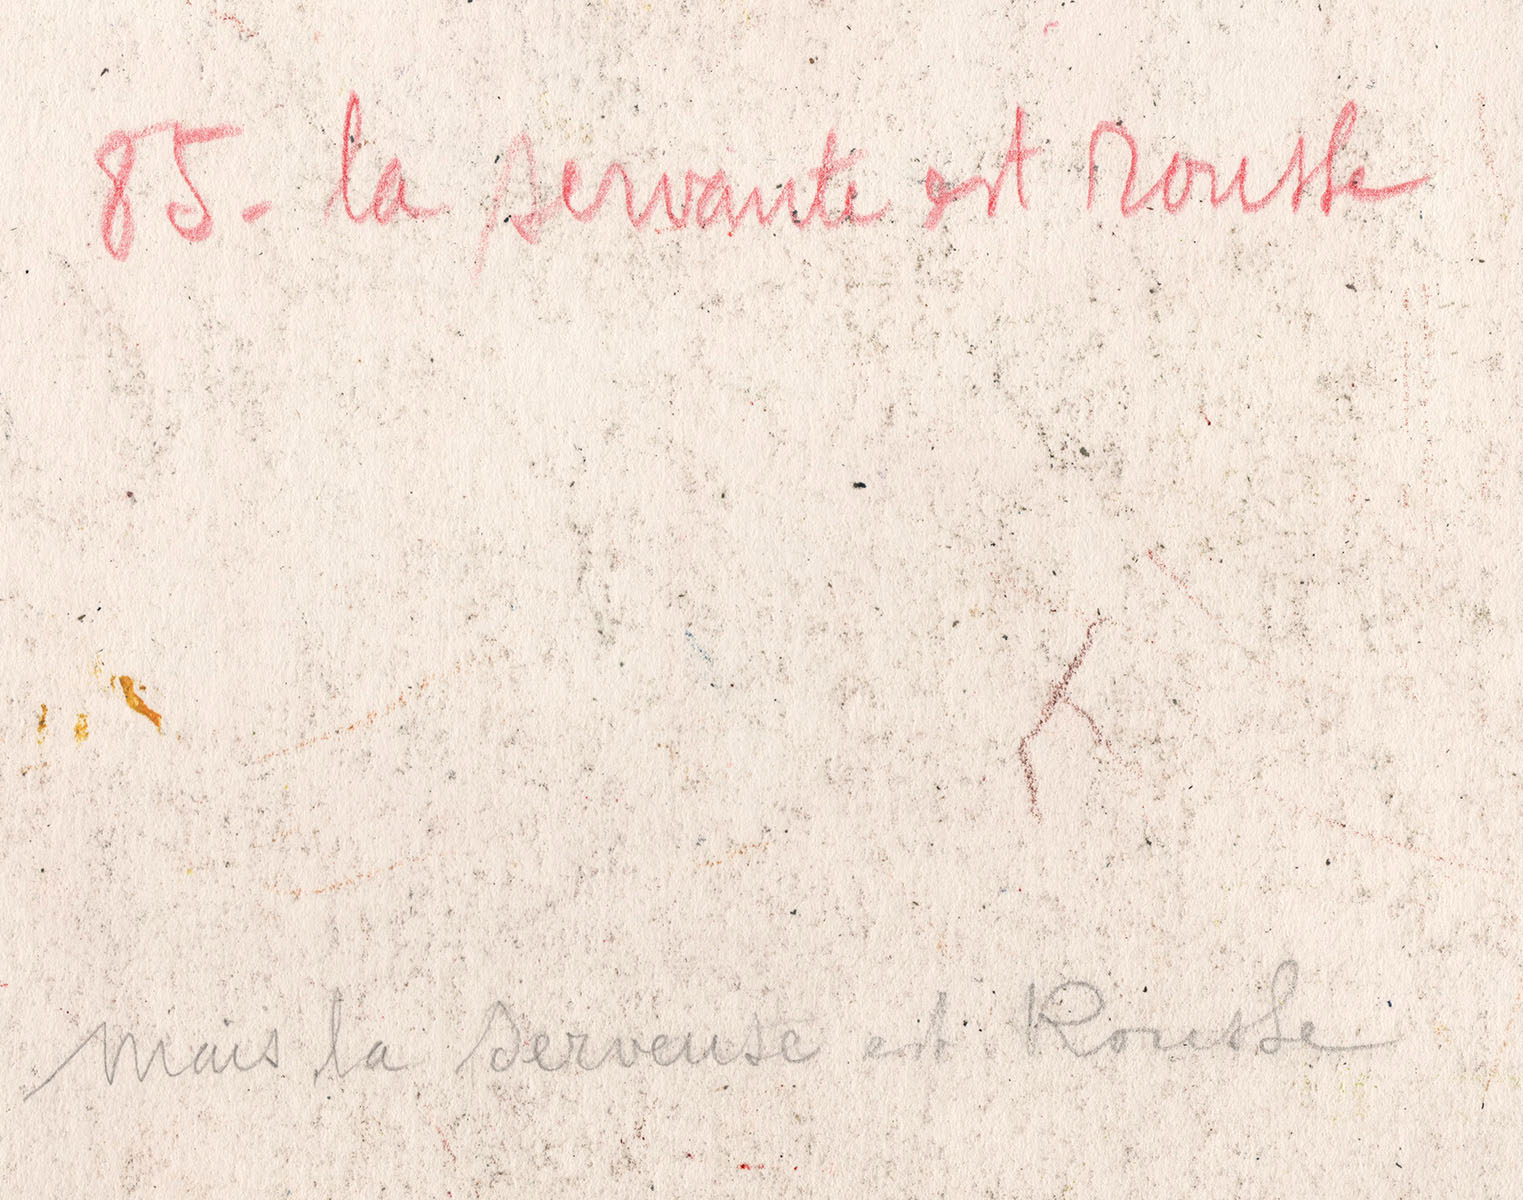 85- la servante est Rousse
mais la serveuse est Rousse